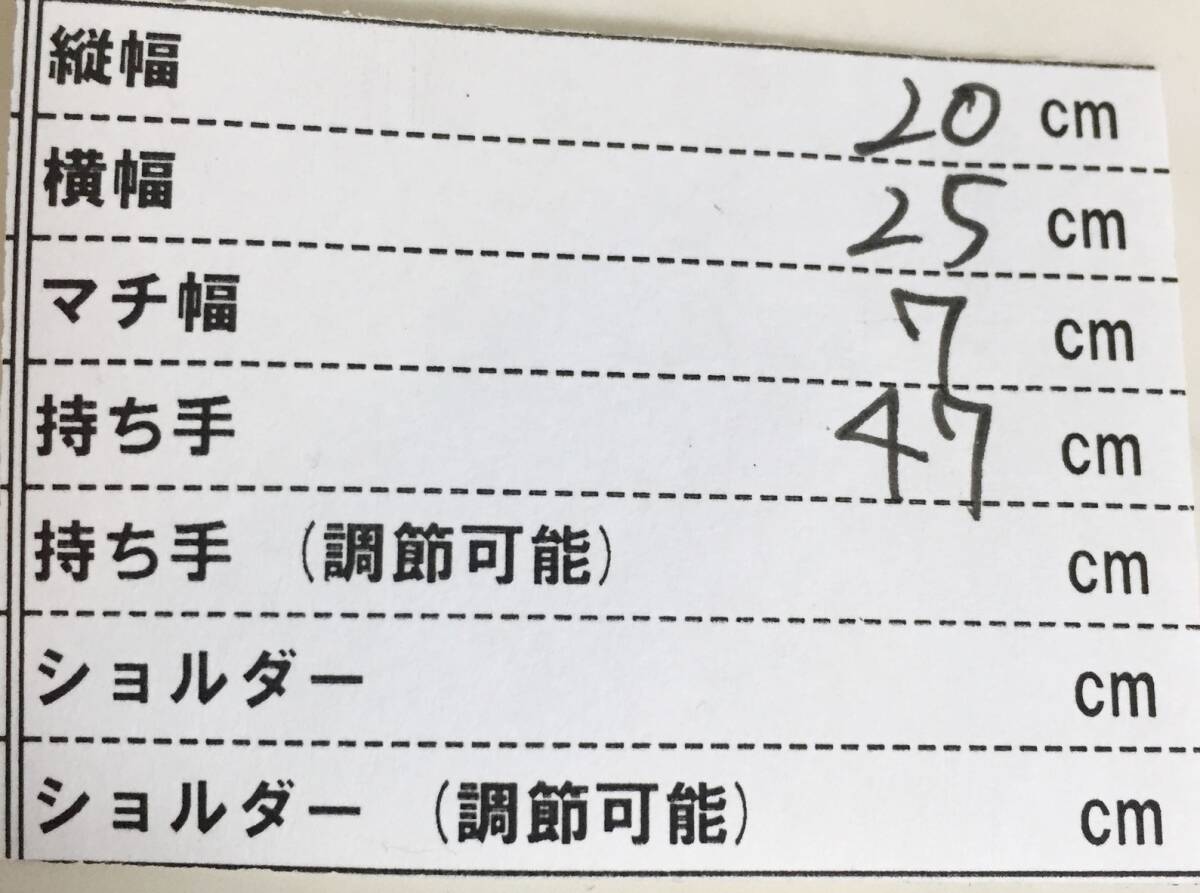 縦幅 20 cm
横幅 25 cm
マチ幅 7 cm
持ち手 47 cm
持ち手 (調節可能) cm
ショルダー cm
ショルダー (調節可能) cm